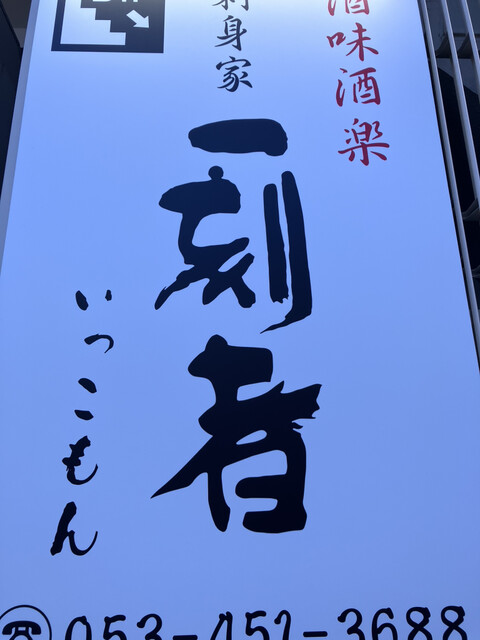 酒味酒楽
刺身家
一刻者
いっこもん
☎053-451-3688